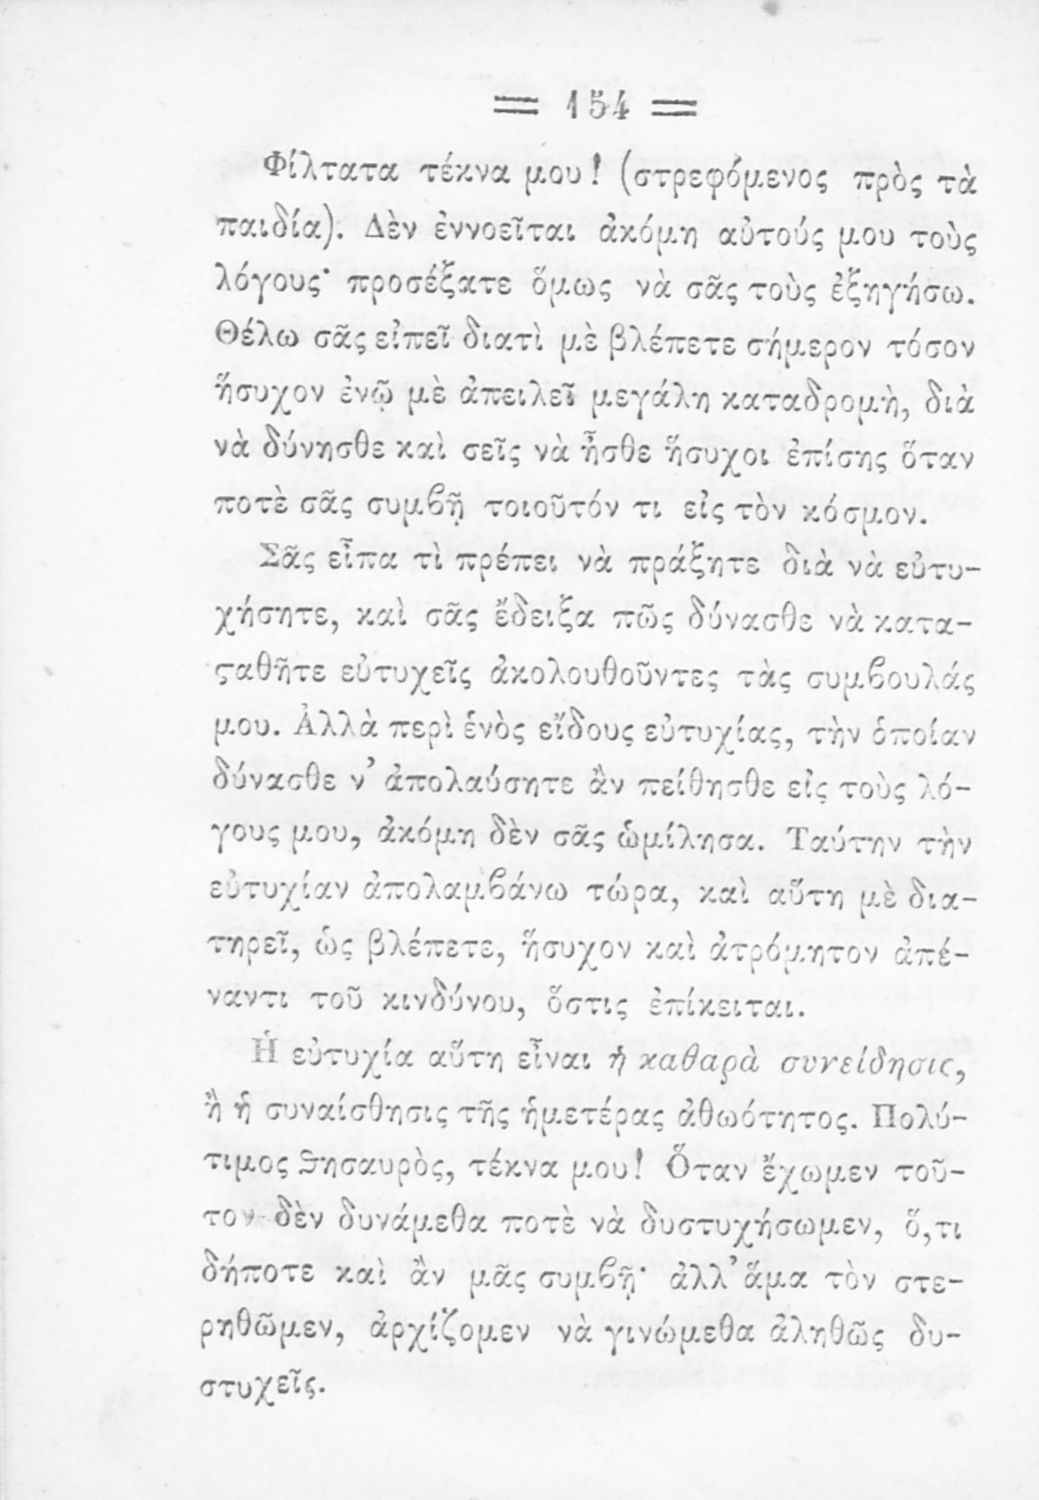 = 154 =
Φίλτατα τέκνα μου! (στρεφόμενος πρὸς τὰ
παιδία). Δὲν ἐννοεῖται ἀκόμη αὐτούς μου τοὺς
λόγους· προσέξατε ὅμως νὰ σᾶς τοὺς ἐξηγήσω.
Θέλω σᾶς εἰπεῖ διατὶ μὲ βλέπετε σήμερον τόσον
ἥσυχον ἐνῷ μὲ ἀπειλεῖ μεγάλη καταδρομὴ, διὰ
νὰ δύνησθε καὶ σεῖς νὰ ἦσθε ἥσυχοι ἐπίσης ὅταν
ποτὲ σᾶς συμϐῇ τοιοῦτόν τι εἰς τὸν κόσμον.
Σᾶς εἶπα τὶ πρέπει νὰ πράξητε διὰ νὰ εὐτυ-
χήσητε, καὶ σᾶς ἔδειξα πῶς δύνασθε νὰ κατα-
ϛαθῆτε εὐτυχεῖς ἀκολουθοῦντες τὰς συμϐουλάς
μου. Ἀλλὰ περὶ ἑνὸς εἴδους εὐτυχίας, τὴν ὁποίαν
δύνασθε ν' ἀπολαύσητε ἂν πείθησθε εἰς τοὺς λό-
γους μου, ἀκόμη δὲν σᾶς ὡμίλησα. Ταύτην τὴν
εὐτυχίαν ἀπολαμϐάνω τώρα, καὶ αὕτη μὲ δια-
τηρεῖ, ὡς βλέπετε, ἥσυχον καὶ ἀτρόμητον ἀπέ-
ναντι τοῦ κινδύνου, ὅστις ἐπίκειται.
Ἡ εὐτυχία αὕτη εἶναι ἡ καθαρὰ συνείδησις,
ἢ ἡ συναίσθησις τῆς ἡμετέρας ἀθωότητος. Πολύ-
τιμος ϑησαυρὸς, τέκνα μου! Ὅταν ἔχωμεν τοῦ-
τον δὲν δυνάμεθα ποτὲ νὰ δυστυχήσωμεν, ὅ,τι
δήποτε καὶ ἂν μᾶς συμϐῇ· ἀλλ' ἅμα τὸν στε-
ρηθῶμεν, ἀρχίζομεν νὰ γινώμεθα ἀληθῶς δυ-
στυχεῖς.